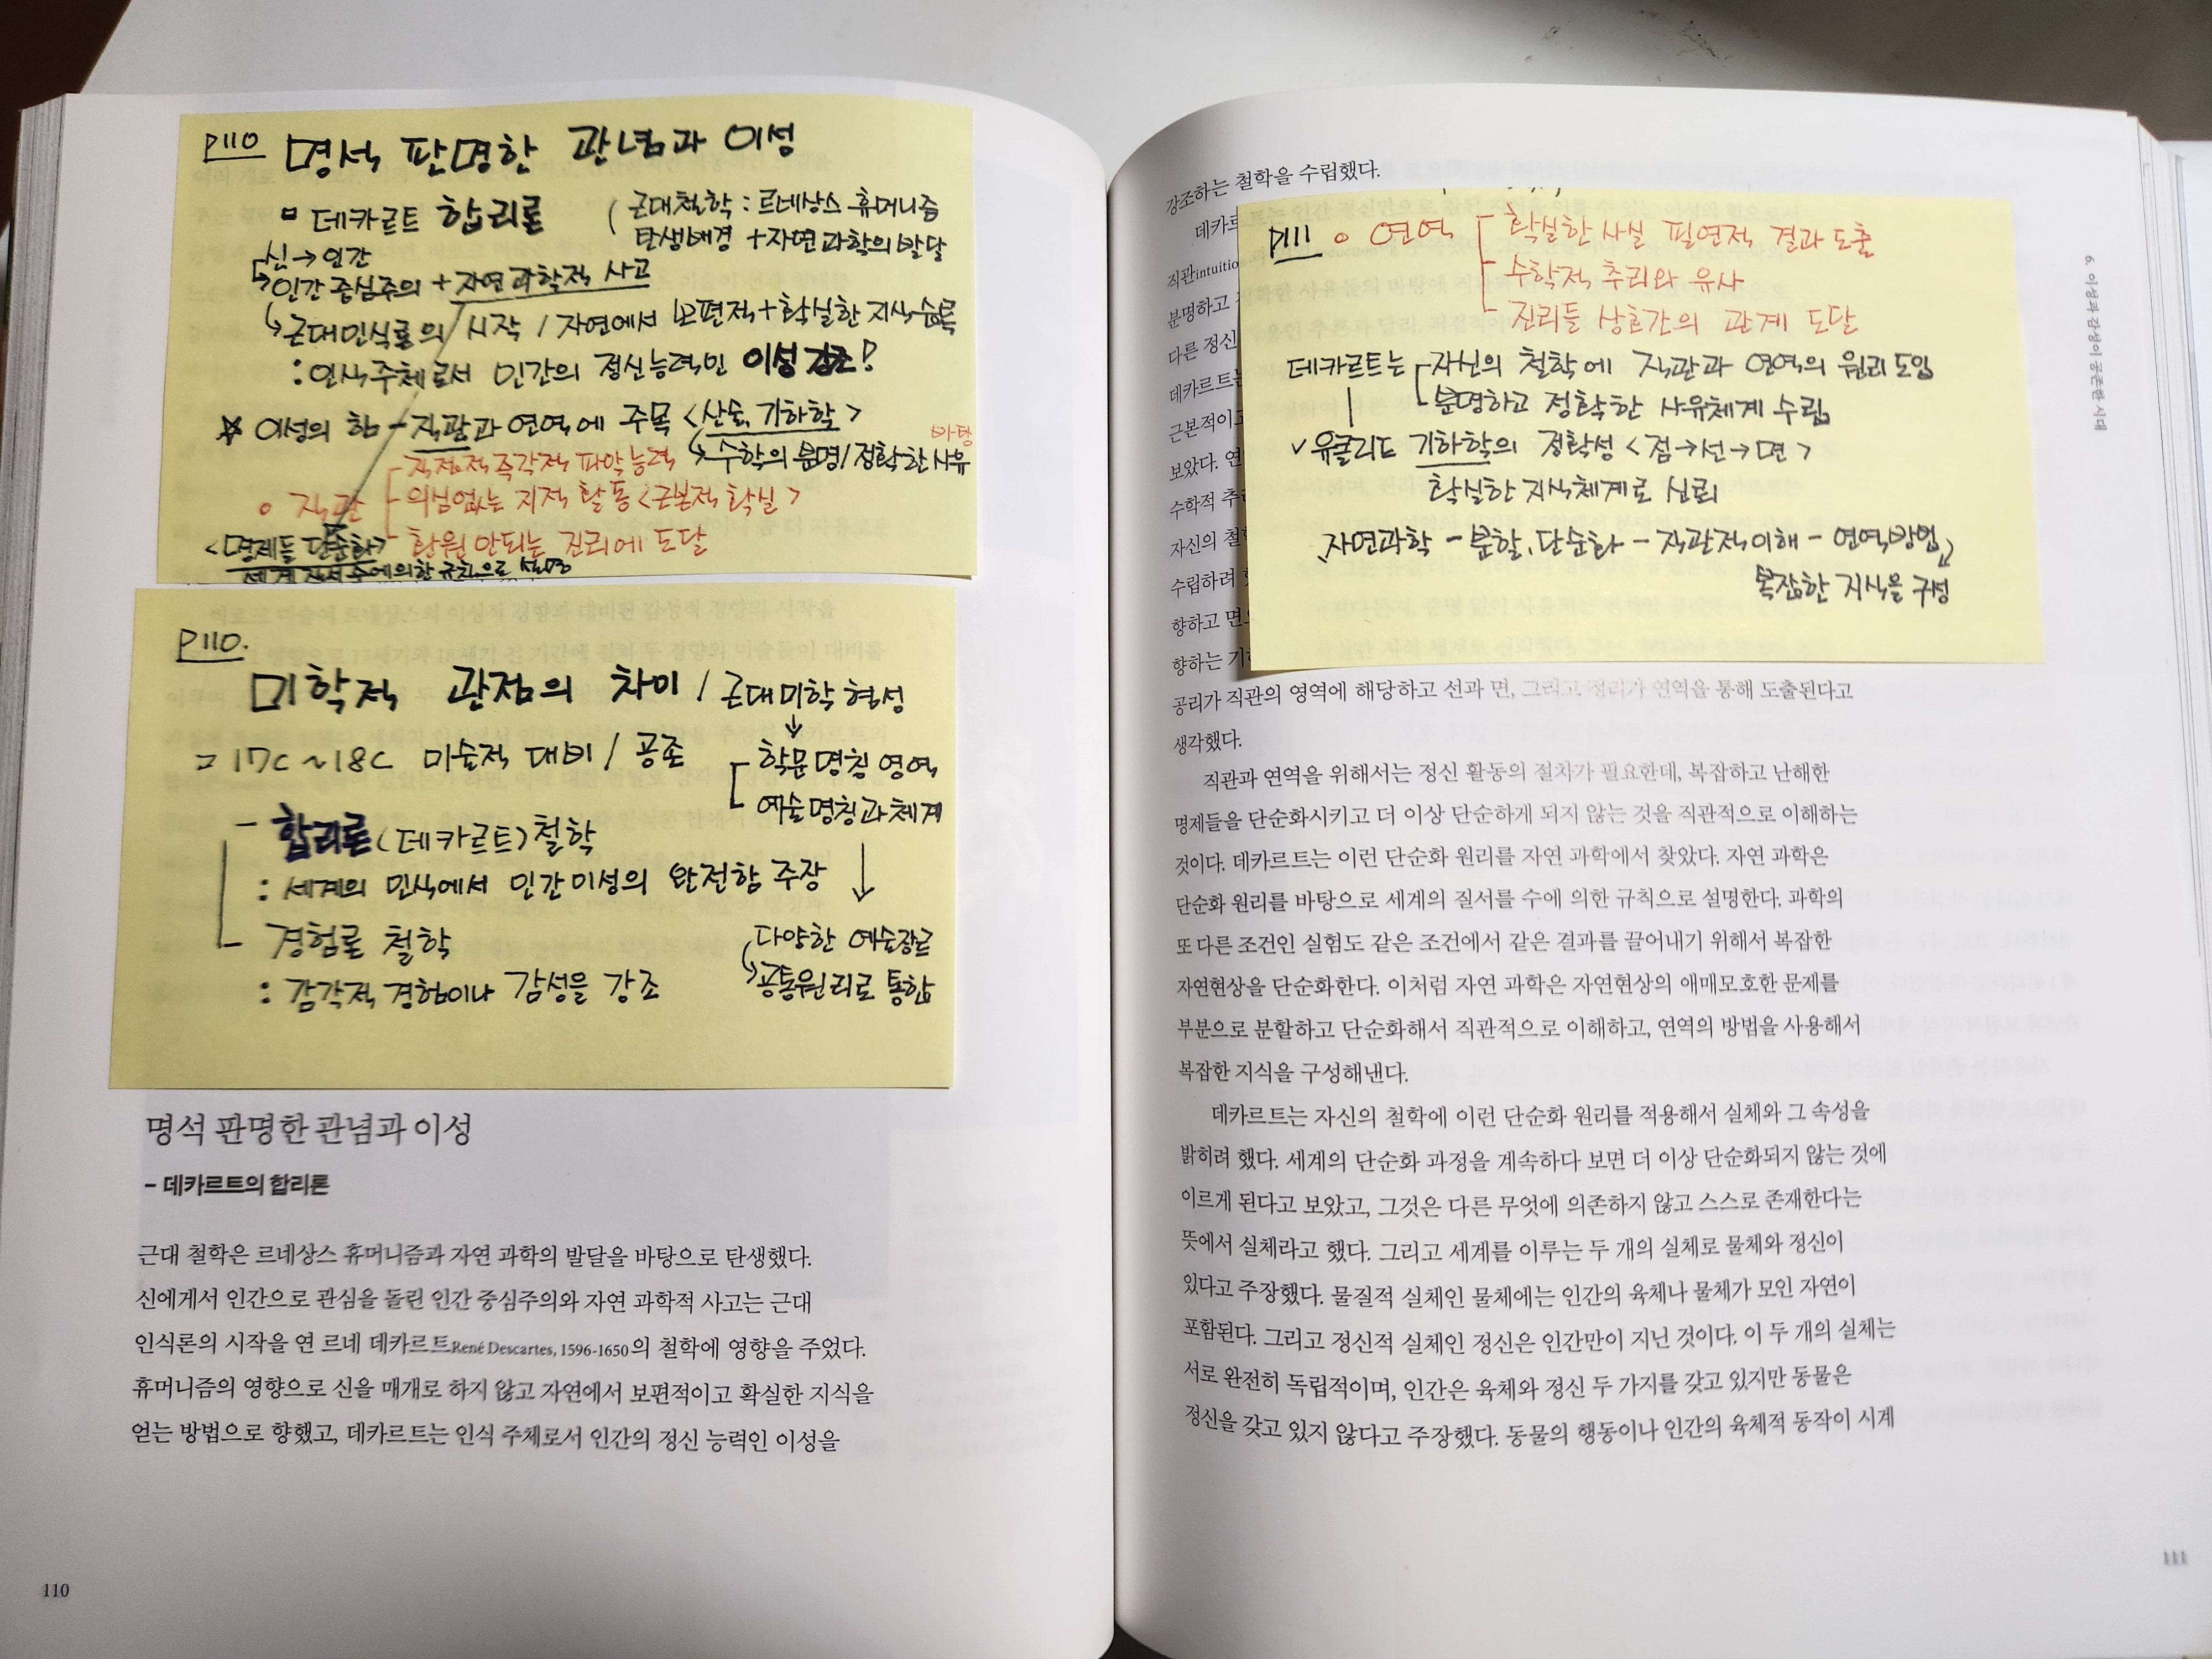 p110 명석 판명한 관념과 이성
데카르트 합리론
(근대철학 : 르네상스 휴머니즘
탄생배경 + 자연과학의 발달
신→인간
인간 중심주의 + 자연과학적 사고
근대인식론의 시작 / 자연에서 보편적+확실한 지식습득
: 인식주체로서 인간의 정신능력인 이성 강조!
☆ 이성의 힘 - 직관과 연역에 주목 <산술, 기하학>
바탕
수학의 분명/정확한 사유
직접적 즉각적 파악능력
직관
의심없는 지적 활동 <근본적 확실>
환원 안되는 진리에 도달
<명제들 단순화>
세계 질서 수에 의한 규칙으로 설명
p110.
미학적 관점의 차이 / 근대미학 형성
↓
= 17C ~ 18C 미술적 대비 / 공존
학문명칭 영역
예술명칭과 체계
- 합리론 (데카르트) 철학
: 세계의 인식에서 인간이성의 완전함 주장
- 경험론 철학
: 감각적 경험이나 감성을 강조
↓
다양한 예술장르
공통원리로 통합
명석 판명한 관념과 이성
– 데카르트의 합리론
근대 철학은 르네상스 휴머니즘과 자연 과학의 발달을 바탕으로 탄생했다.
신에게서 인간으로 관심을 돌린 인간 중심주의와 자연 과학적 사고는 근대
인식론의 시작을 연 르네 데카르트René Descartes, 1596-1650의 철학에 영향을 주었다.
휴머니즘의 영향으로 신을 매개로 하지 않고 자연에서 보편적이고 확실한 지식을
얻는 방법으로 향했고, 데카르트는 인식 주체로서 인간의 정신 능력인 이성을
110
강조하는 철학을 수립했다.
직관
분명하고
다른 정신
데카르트는
보았다.
수학적
자신의 철
수립하려
향하고
향하는
p111 ○ 연역
확실한 사실 필연적 결과 도출
수학적 추리와 유사
진리들 상호간의 관계 도달
데카르트는 자신의 철학에 직관과 연역의 원리 도입
분명하고 정확한 사유체계 수립
✓ 유클리드 기하학의 정확성 <점→선→면>
확실한 지식체계로 신뢰
자연과학 - 분할, 단순화 - 직관적이해 - 연역방법
복잡한 지식을 구성
공리가 직관의 영역에 해당하고 선과 면, 그리고 정리가 연역을 통해 도출된다고
생각했다.
직관과 연역을 위해서는 정신 활동의 절차가 필요한데, 복잡하고 난해한
명제들을 단순화시키고 더 이상 단순하게 되지 않는 것을 직관적으로 이해하는
것이다. 데카르트는 이런 단순화 원리를 자연 과학에서 찾았다. 자연 과학은
단순화 원리를 바탕으로 세계의 질서를 수에 의한 규칙으로 설명한다. 과학의
또 다른 조건인 실험도 같은 조건에서 같은 결과를 끌어내기 위해서 복잡한
자연현상을 단순화한다. 이처럼 자연 과학은 자연현상의 애매모호한 문제를
부분으로 분할하고 단순화해서 직관적으로 이해하고, 연역의 방법을 사용해서
복잡한 지식을 구성해낸다.
데카르트는 자신의 철학에 이런 단순화 원리를 적용해서 실체와 그 속성을
밝히려 했다. 세계의 단순화 과정을 계속하다 보면 더 이상 단순화되지 않는 것에
이르게 된다고 보았고, 그것은 다른 무엇에 의존하지 않고 스스로 존재한다는
뜻에서 실체라고 했다. 그리고 세계를 이루는 두 개의 실체로 물체와 정신이
있다고 주장했다. 물질적 실체인 물체에는 인간의 육체나 물체가 모인 자연이
포함된다. 그리고 정신적 실체인 정신은 인간만이 지닌 것이다. 이 두 개의 실체는
서로 완전히 독립적이며, 인간은 육체와 정신 두 가지를 갖고 있지만 동물은
정신을 갖고 있지 않다고 주장했다. 동물의 행동이나 인간의 육체적 동작이 시계
6. 이성과 감성이 공존한 시대
111